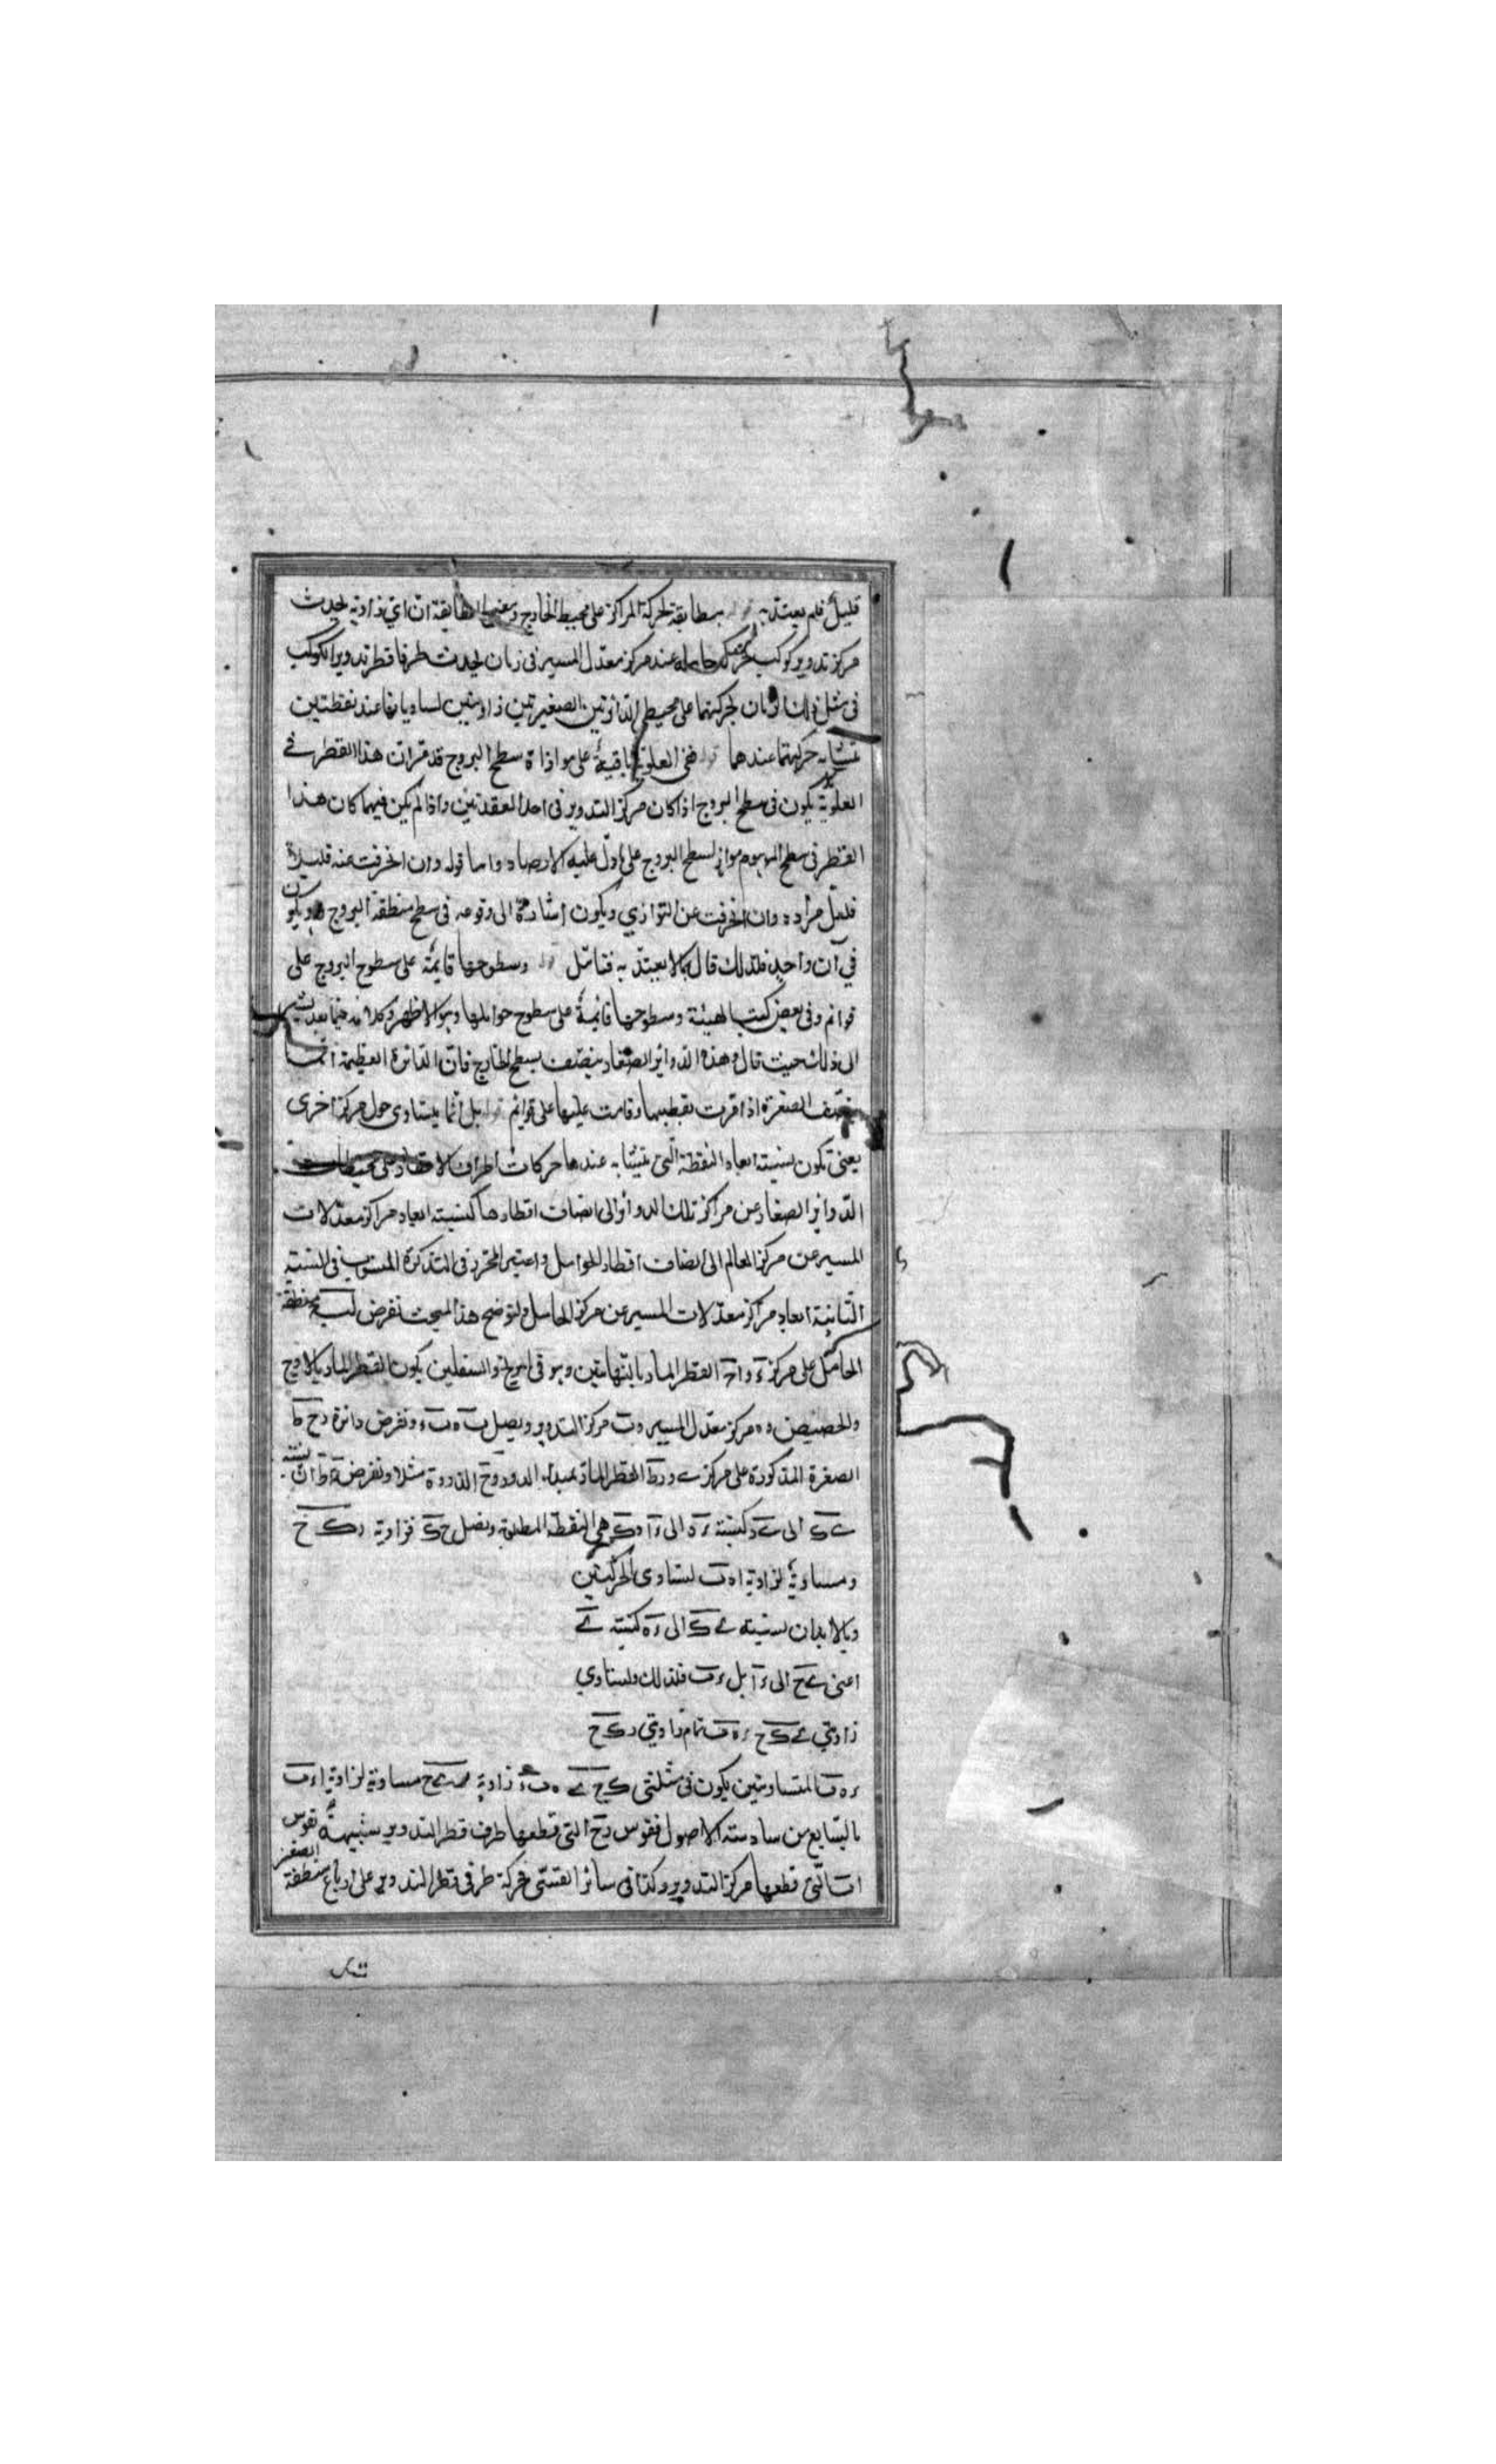 قليل فلم يعتد به قوله بمطابقة لحركة المراكز على محيط الخارج ومعنى المطابقة ان اي زاوية يحدث
مركز تدوير كوكب بحركة حامله عند مركز معدل المسير في زمان يحدث طرفا قطر تدوير الكوكب
في مثل ذلك الزمان بحركتهما على محيطي الدائرتين الصغيرتين زاويتين تساويانها عند نقطتين
تتشابه حركتهما عندهما قوله ففي العلوية باقية على موازاة سطح البروج قد قرر ان هذا القطر في
العلوية يكون في سطح البروج اذا كان مركز التدوير في احد العقدتين واذا لم يكن فيهما كان هذا
القطر في سطح الموهوم مواز لسطح البروج على ما دل عليه الارصاد واما قوله وان انحرفت عنه قليلا
فلعل مراده وان انحرفت عن التوازي ويكون اشارة الى وقوعه في سطح منطقة البروج ويكون
في آن واحد فلذلك قال بما لا يعتد به فتامل قوله وسطوحها قائمة على سطوح البروج على
قوائم وفي بعض كتب الهيئة وسطوحها قائمة على سطوح حواملها وهو الاظهر وكلامه فيما بعد يشير
الى ذلك حيث قال وهذه الدوائر الصغار ينصف بسطح الخارج فان الدائرة العظيمة انما
ينصف الصغرة اذا مرت بقطبيها وقامت عليها على قوائم قوله بل انما يتساوى حول مركز اخرى
يعني تكون نسبة ابعاد النقطة التي تتشابه عندها حركات اطراف الاقطار على محيطات
الدوائر الصغار عن مراكز تلك الدوائر الى انصاف اقطارها كنسبة ابعاد مراكز معدلات
المسير عن مركز العالم الى انصاف اقطار الحوامل واعتبر المحرر في التذكرة المنسوب في النسبة
الثانية ابعاد مراكز معدلات المسير عن مركز الحامل ولتوضح هذا المبحث نفرض اب ح منطقة
الحامل على مركز ء و ا ح القطر المار بالنهايتين وهو في المريخ والسفليين يكون القطر المار بالاوج
والحضيض و ه مركز معدل المسير و ب مركز التدوير ونصل ب ه ب ء ونفرض دائرة ر ح ط
الصغرة المذكورة على مركز ى و ر ط القطر المار بمبدا الدور و ح الذروة مثلا ونفرض نسبة
ى ك الى ى ر كنسبة ء ه الى ء ا و ك هي النقطة المطلوبة ونصل ح ك فزاوية ر ك ح
ومساوية لزاوية ا ه ب لتساوي الحركتين
وبالابدال نسبة ى ك الى ء ه كنسبة ى
اعني ى ح الى ء ا بل ء ب فلذلك ولتساوي
زاويتي ى ك ح ء ه ب تمام زاويتي ر ك ح
ء ه ب المتساويتين يكون في مثلثي ك ح ى ه ب ء زاوية ى ح مساوية لزاوية ا ء ب
بالسابع من سادسة الاصول فقوس ر ح التي قطعها طرف قطر التدوير شبيهة بقوس
ا ب التي قطعها مركز التدوير وكذا في سائر القسي فحركة طرفي قطر التدوير على ارباع منطقة الصغر